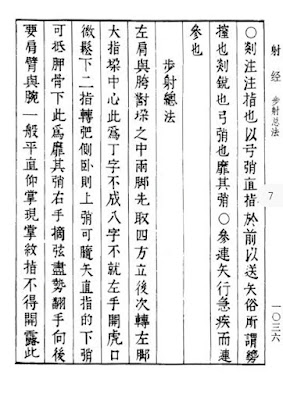 射 经 步射总法
7
一〇三六
〇剡注注指也以弓弰直指於前以送矢俗所謂
也剡銳也弓弰也靡其弰〇參連矢行急疾而連
參也
步射總法
左肩與胯對垛之中兩脚先取四方立後次轉左脚
大指垛中心此爲丁字不成八字不就左手開虎口
微鬆下二指轉弝側臥則上弰可隨矢直指的下弰
可抵胛骨下此爲靡其弰右手摘弦盡勢翻手向後
要肩臂與腕一般平直仰掌現掌紋指不得開露此